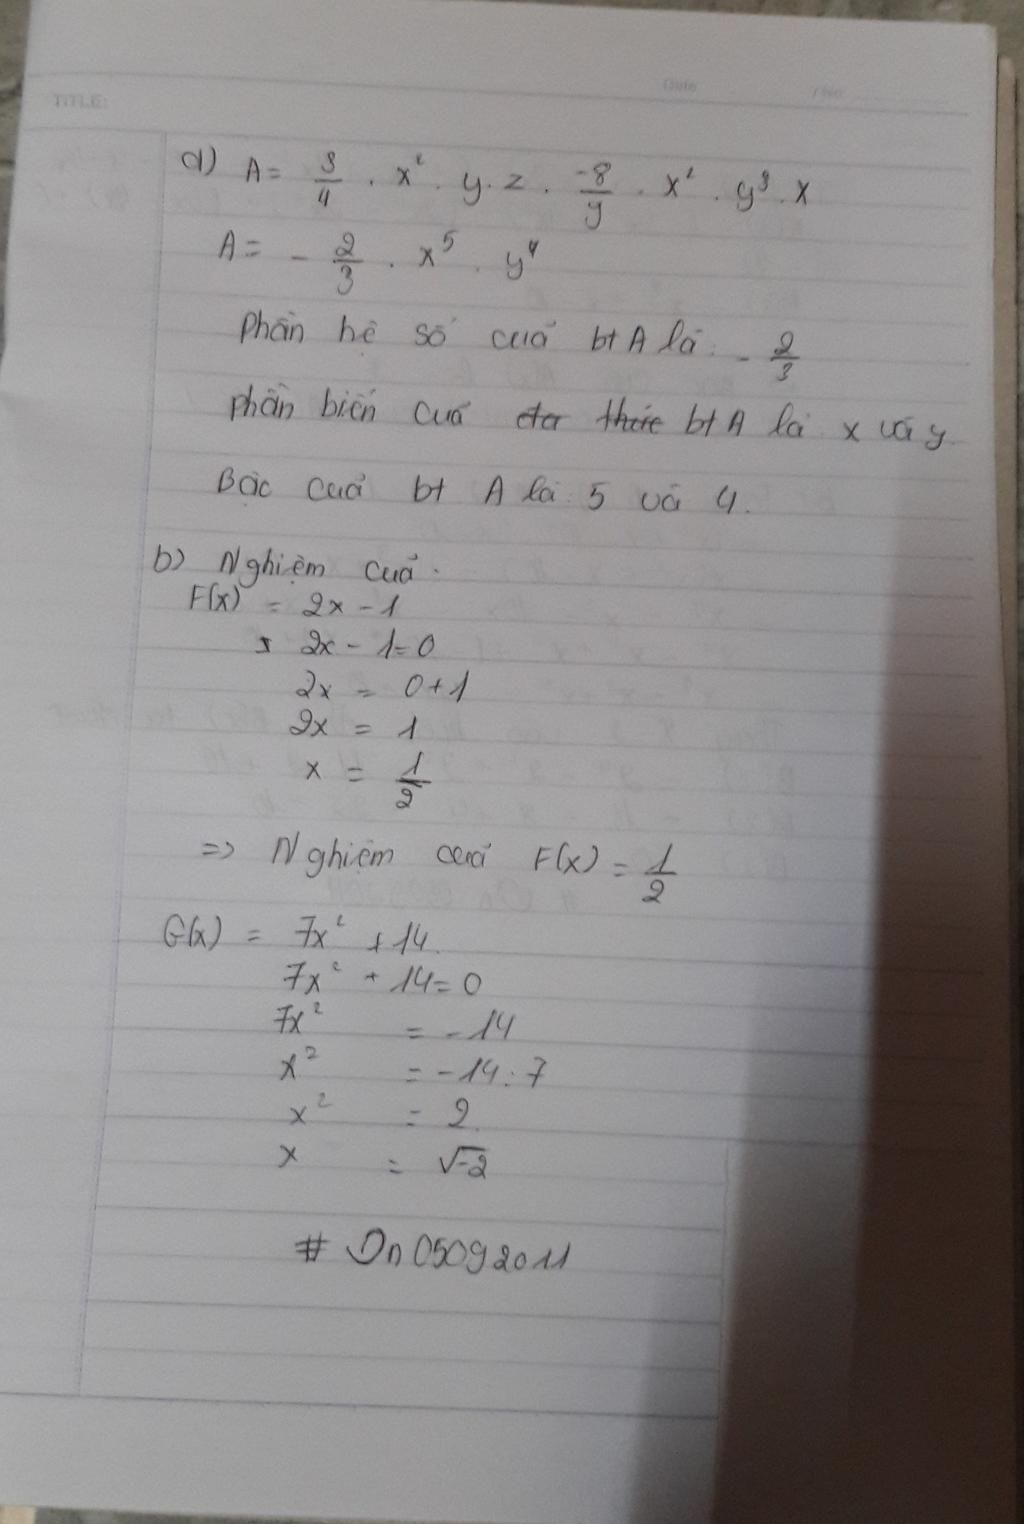 TITLE:
Date
/ No
a) A = 3/4 . x² . y . z . -8/9 . x² . y³ . x
A = - 2/3 . x⁵ . y⁴
phần hệ số của bt A là: - 2/3
phần biến của đa thức bt A là x và y
Bậc của bt A là 5 và 4.
b) Nghiệm của.
F(x) = 2x - 1
2x - 1 = 0
2x = 0 + 1
2x = 1
x = 1/2
=> Nghiệm của F(x) = 1/2
G(x) = 7x² + 14.
7x² + 14 = 0
7x² = -14
x² = -14 : 7
x² = 2.
x = √-2
# Dn05092011